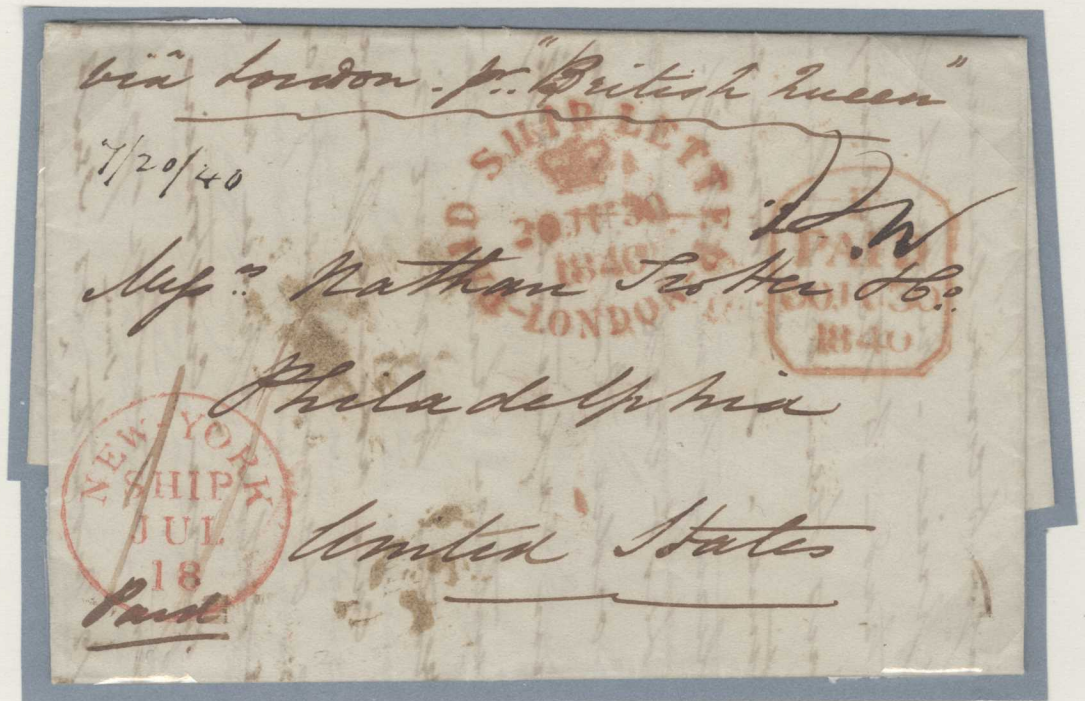 viâ London. pr. "British Queen"
7/20/40
PAID SHIP LETTER
30 JU 30
1840
LONDON
PAID
30 JU 30
1840
Messrs. Nathan Trotter & Co.
Philadelphia
NEW YORK
SHIP
JUL
18
United States
Paid